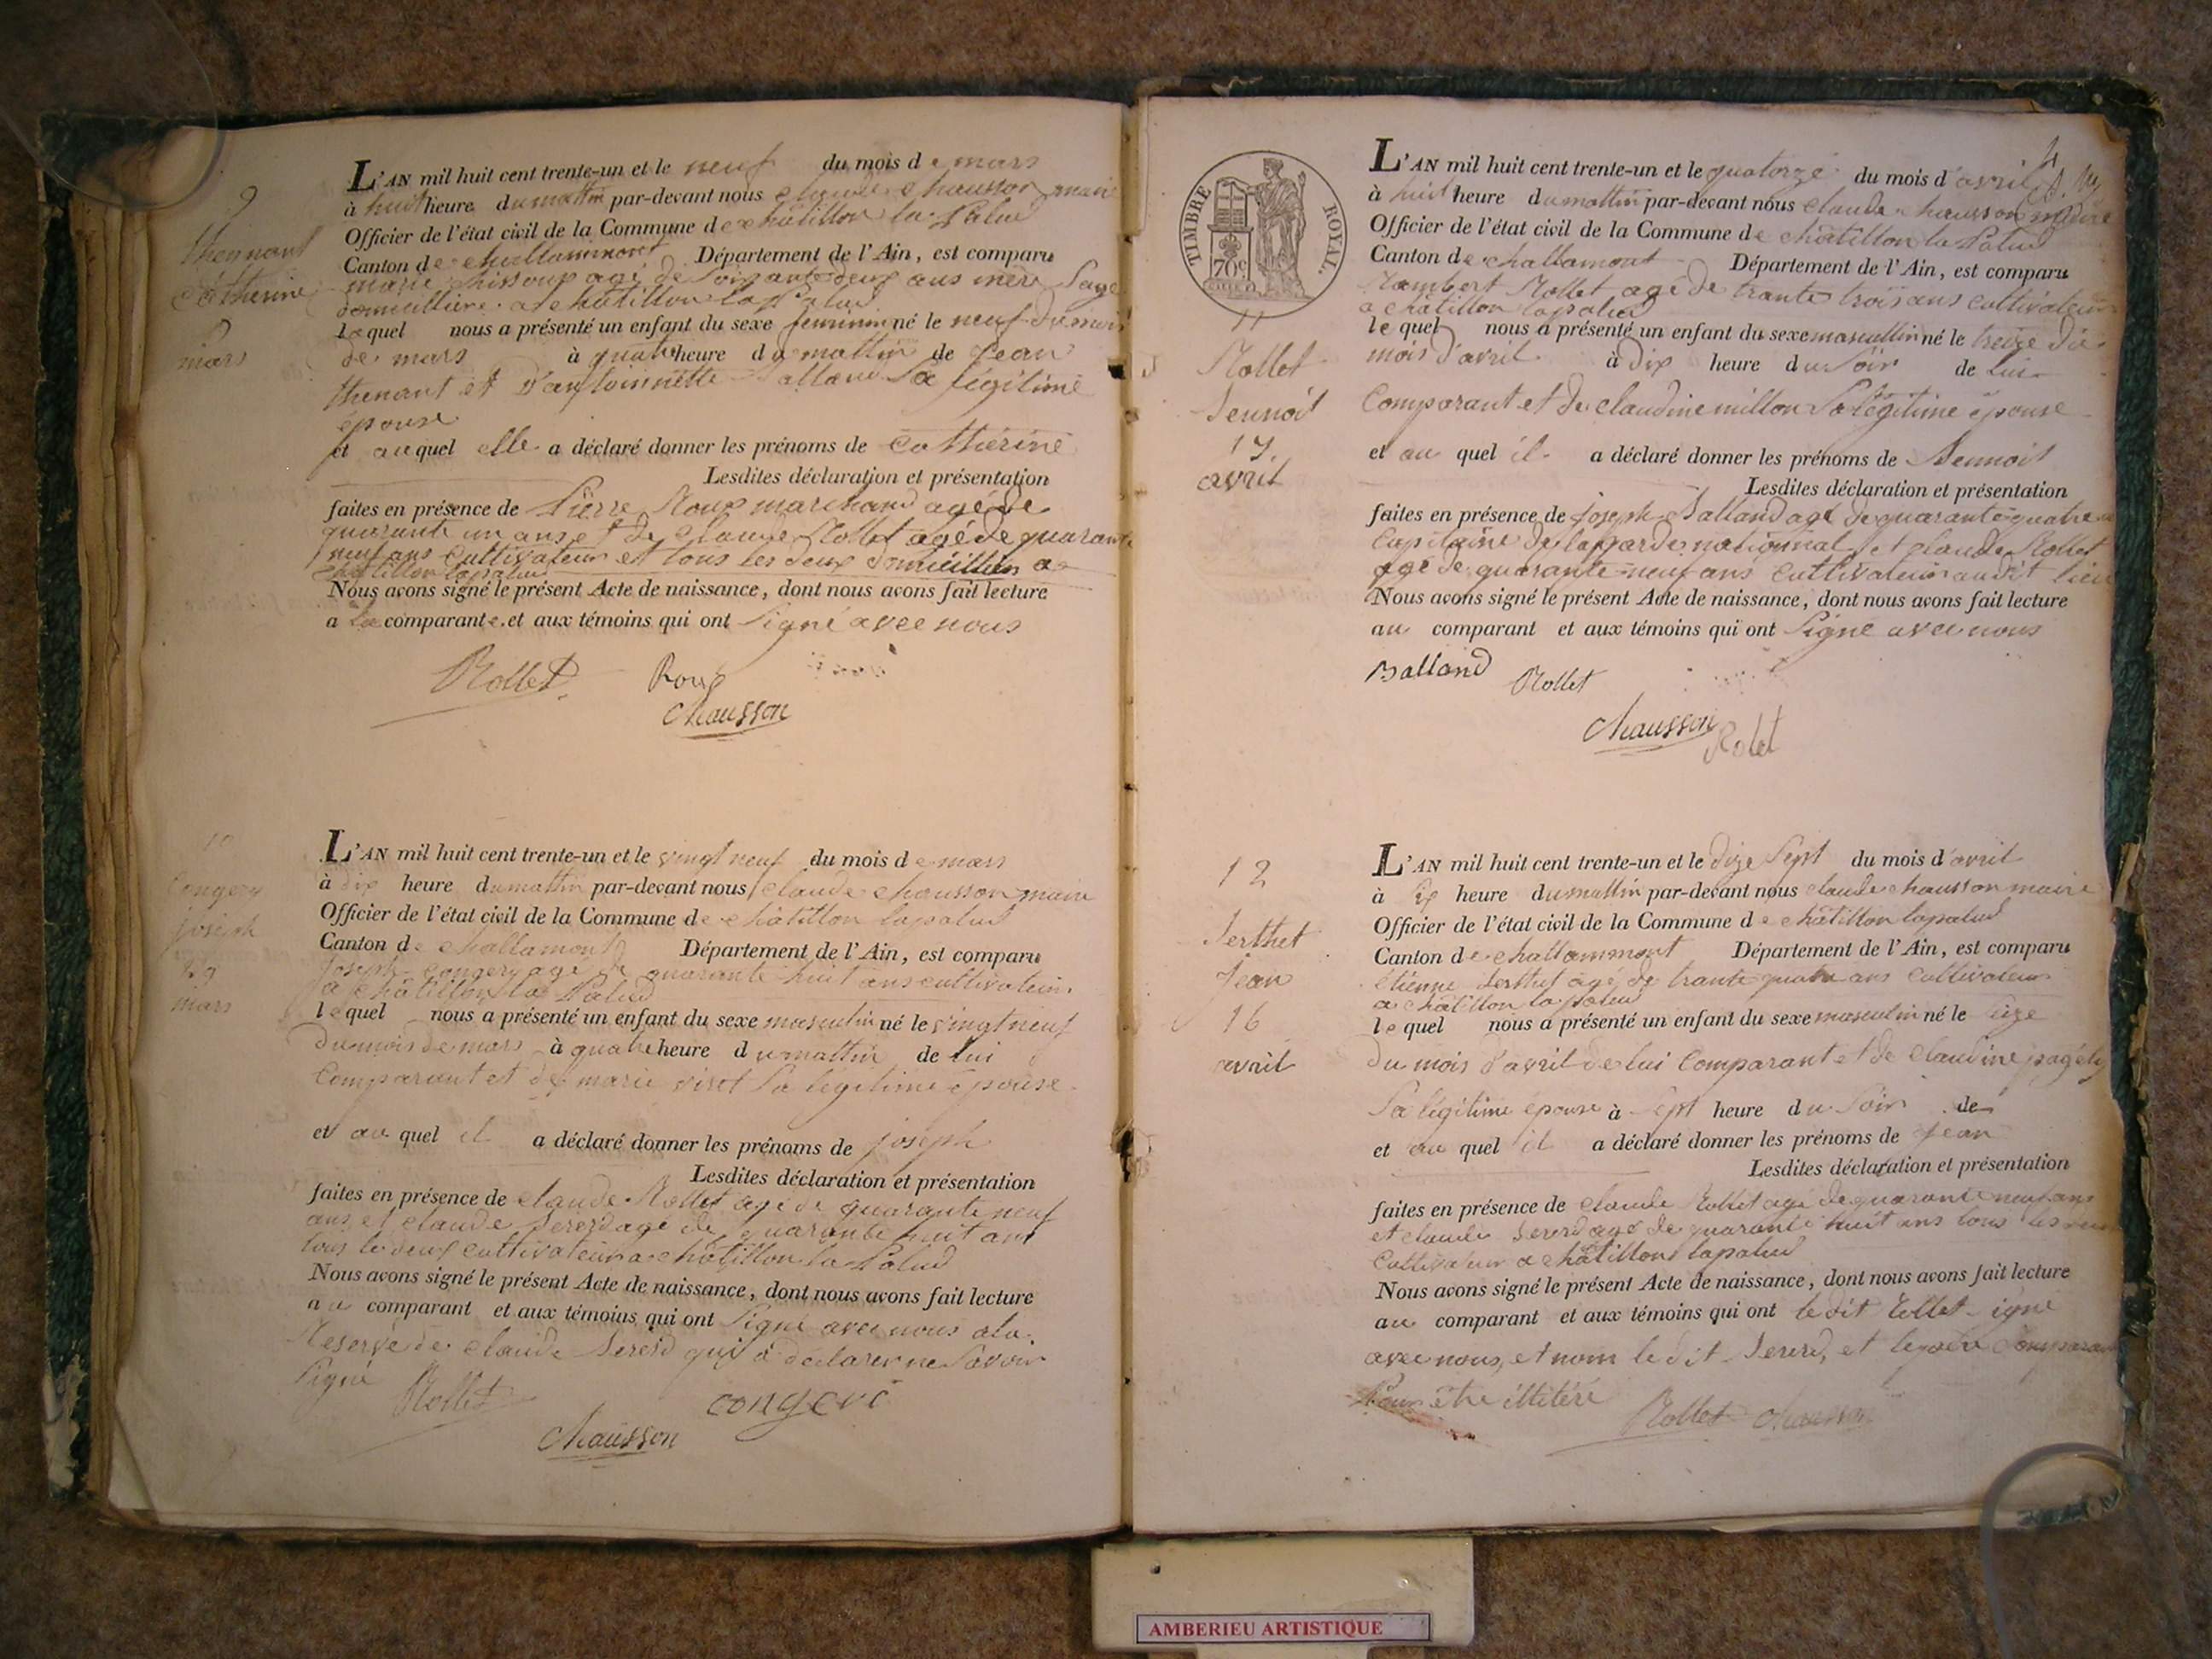 9
thennant
Catherine
9
mars
L'AN mil huit cent trente-un et le neuf du mois de mars
à huit heure du mattin par-devant nous claude chausson maire
Officier de l'état civil de la Commune de châtillon la Palud
Canton de challammont Département de l'Ain, est comparu
marie agé de Soixante deux ans mère Sage
domicillière a châtillon la Palud
Laquel nous a présenté un enfant du sexe feminin né le neuf du mois
de mars à quatre heure du mattin de Jean
thenant et D'antoinnette Balland Sa légitime
épouse
et auquel elle a déclaré donner les prénoms de Catherine
Lesdites déclaration et présentation
faites en présence de Pierre Roux marchand agé de
quarante un ans et de Claude Rollet agé de quarante
neuf ans Cultivateur et tous les deux domicilliers a
châtillon lapalud
Nous avons signé le présent Acte de naissance, dont nous avons fait lecture
a la comparante et aux témoins qui ont Signé avec nous
Rollet Roux
Chausson
10
Congery
joseph
29
mars
L'AN mil huit cent trente-un et le vingt neuf du mois de mars
à dix heure du mattin par-devant nous claude chausson maire
Officier de l'état civil de la Commune de châtillon lapalud
Canton de challamont Département de l'Ain, est comparu
Joseph congery agé de quarante huit ans cultivateur
a châtillon la Palud
lequel nous a présenté un enfant du sexe masculin né le vingt neuf
du mois de mars à quatre heure du mattin de lui
Comparant et de marie visot Sa légitime épouse
et au quel il a déclaré donner les prénoms de joseph
Lesdites déclaration et présentation
faites en présence de claude Rollet agé de quarante neuf
ans et claude Bererd agé de quarante huit ans
tous le deux cultivateur a châtillon la Palud
Nous avons signé le présent Acte de naissance, dont nous avons fait lecture
au comparant et aux témoins qui ont Signé avec nous ala
Reserve de claude Bererd qui a déclarer ne Savoir
Signé
Rollet congeri
Chausson
4
TIMBRE ROYAL.
70c.
11
Rollet
Bennoit
13
avril
L'AN mil huit cent trente-un et le quatorze du mois d'avril
à huit heure du mattin par-devant nous claude chausson maire
Officier de l'état civil de la Commune de châtillon la Palud
Canton de challamont Département de l'Ain, est comparu
Rambert Rollet agé de trante trois ans cultivateur
a châtillon lapalud
lequel nous a présenté un enfant du sexe mascullin né le treize du
mois d'avril à dix heure du Soir de lui
Comparant et de claudine millon Sa légitime épouse
et au quel il a déclaré donner les prénoms de Bennoit
Lesdites déclaration et présentation
faites en présence de joseph Balland agé de quarante quatre
Capitaine de lagarde nationnal et claude Rollet
agé de quarante neuf ans Cultivateur audit lieu
Nous avons signé le présent Acte de naissance, dont nous avons fait lecture
au comparant et aux témoins qui ont Signé avec nous
Balland Rollet
Chausson Rolet
12
Berthet
Jean
16
avril
L'AN mil huit cent trente-un et le dixe Sept du mois d'avril
à Six heure du mattin par-devant nous claude chausson maire
Officier de l'état civil de la Commune de châtillon lapalud
Canton de challammont Département de l'Ain, est comparu
étienne Berthet agé de trante quatre ans cultivateur
a châtillon la palud
lequel nous a présenté un enfant du sexe masculin né le Size
du mois d'avril de lui Comparant et de Claudine
Sa légitime épouse à Sept heure du Soir de
et au quel il a déclaré donner les prénoms de Jean
Lesdites déclaration et présentation
faites en présence de claude Rollet agé de quarante neuf ans
et claude Bererd agé de quarante huit ans tous les deux
Cultivateur a châtillon lapalud
Nous avons signé le présent Acte de naissance, dont nous avons fait lecture
au comparant et aux témoins qui ont ledit Rollet Signé
avec nous, et nom le dit Bererd, et le père Comparant
Pour être illitéré
Rollet Chausson
AMBERIEU ARTISTIQUE